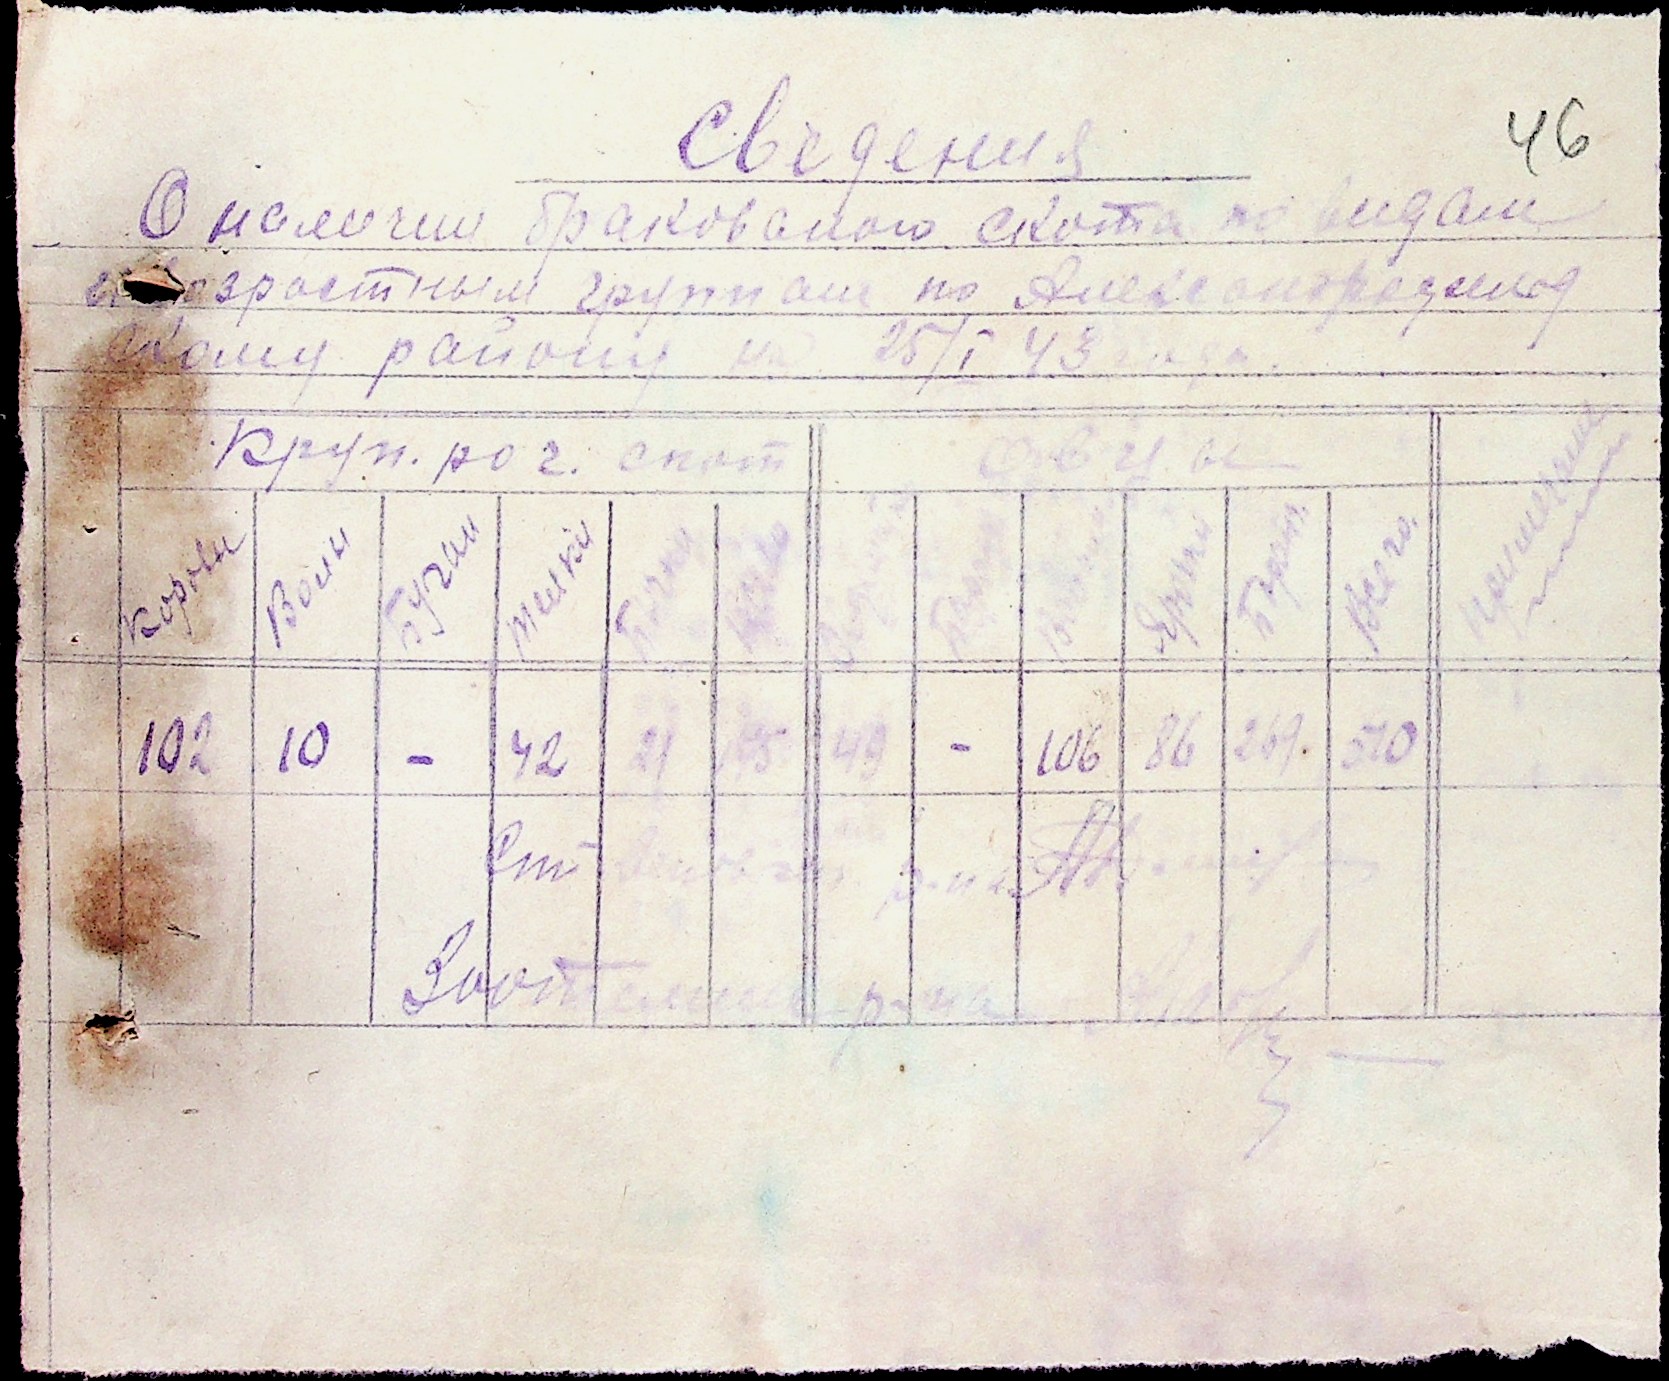 46
Сведения
О наличии бракованого скота по видам
и возрастным группам по
скому району на 25/I 43 года.
Круп. рог. скот Овцы Примечание
Коровы Волы Бугаи телки Бычки Всего Бараны Ярки Всего.
102 10 - 42 21 175 49 - 106 86 269. 510
Ст р-на
Зоотехник р-на